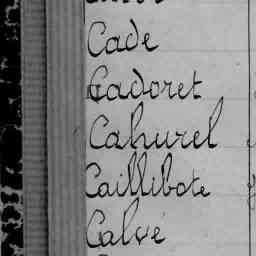 Cade
Cadoret
Cahurel
Caillibote
Calvé